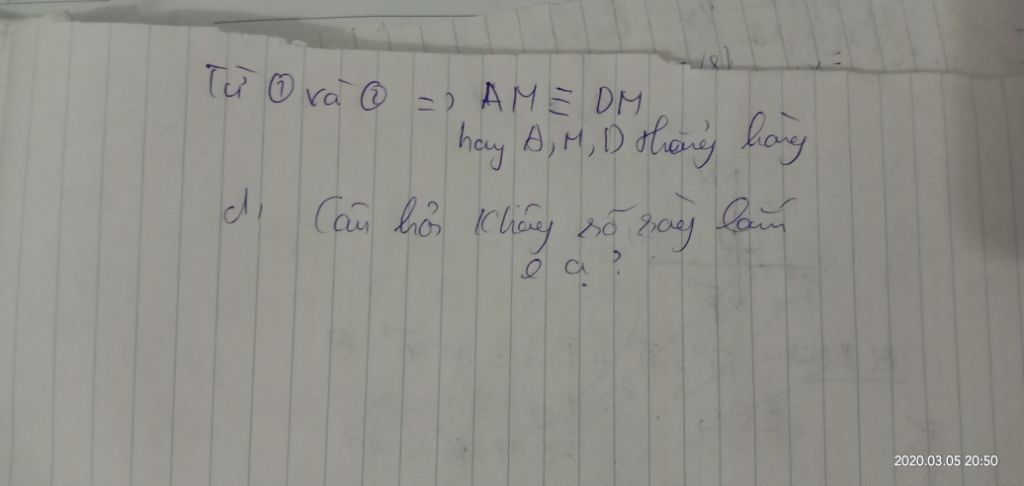 Từ ① và ② => AM ≡ DM
hay A, M, D thẳng hàng
d, Câu hỏi không rõ ràng lắm
ạ?
2020.03.05 20:50